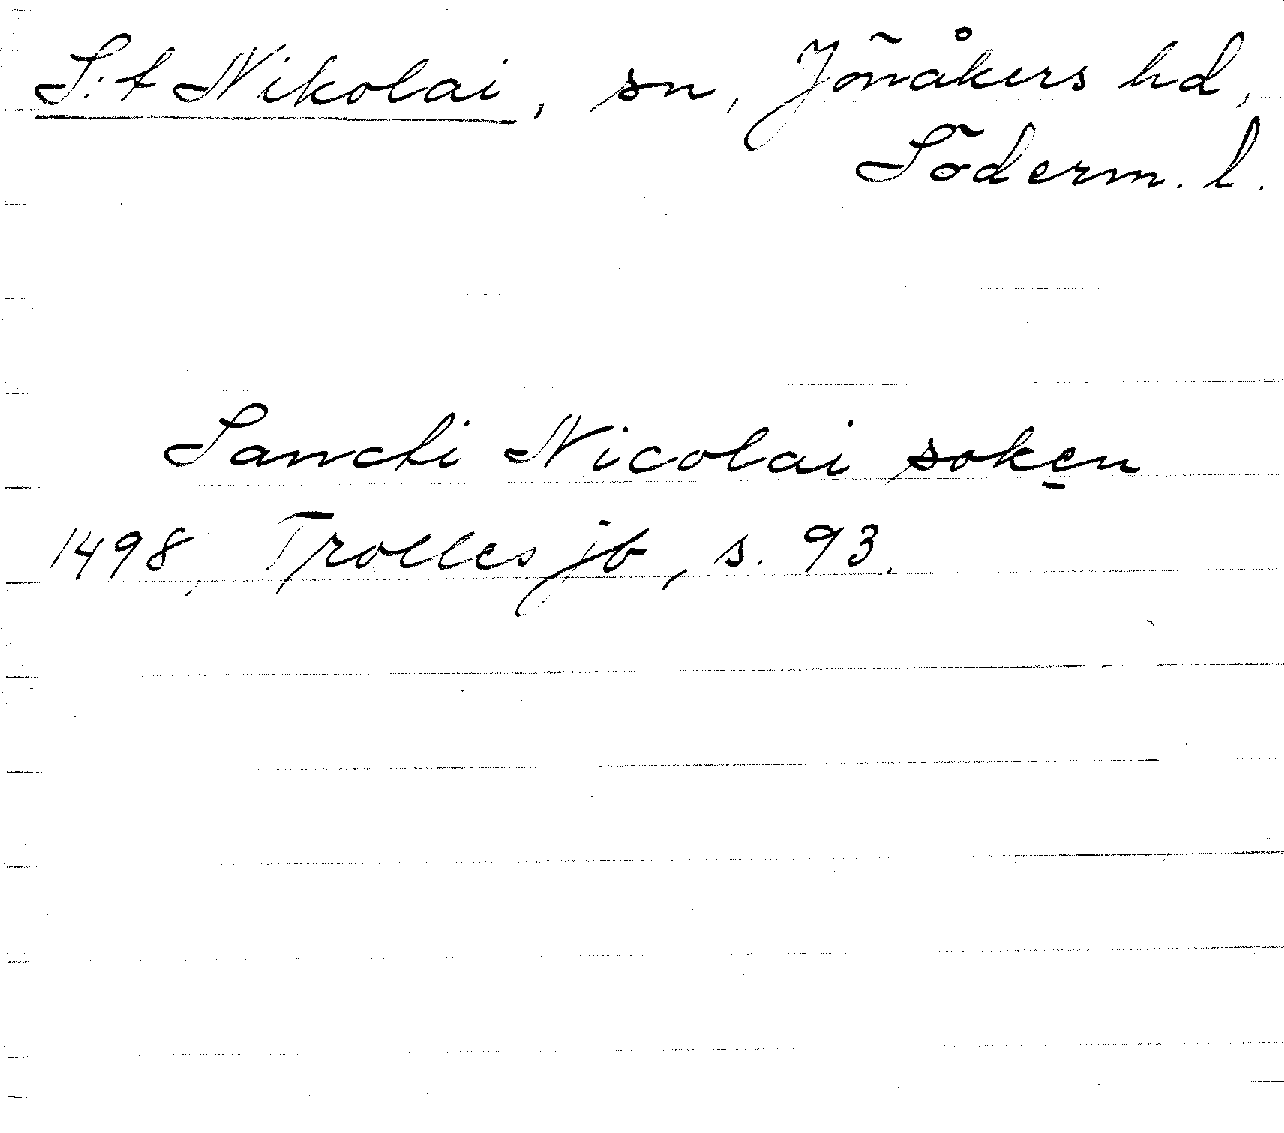 S:t Nikolai, sn, Jönåkers hd,
Söderm. l.
Sancti Nicolai soken
1498, Trolles jb, s. 93.